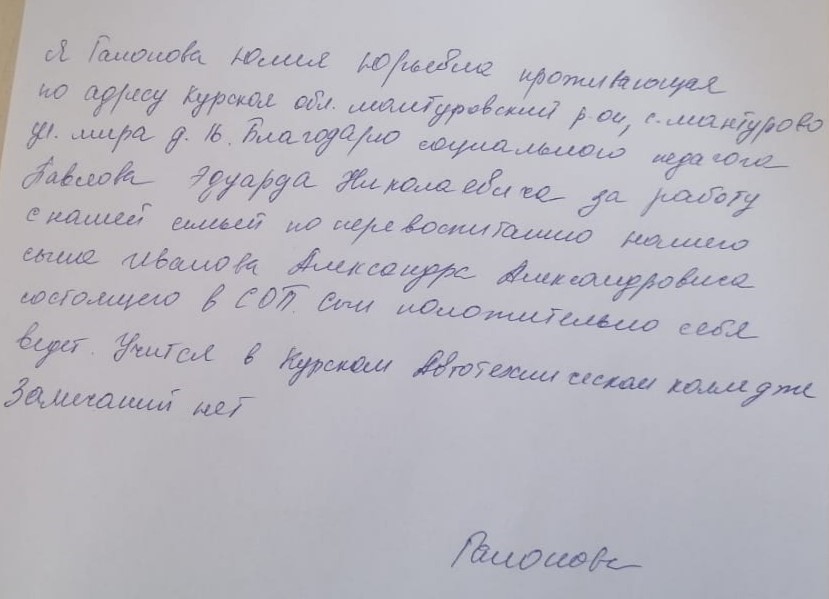 Я Галонова Юлия Юрьевна проживающая
по адресу Курская обл. мантуровский р-он, с. мантурово
ул. мира д. 16. Благодарю социального педагога
Павлова Эдуарда Николаевича за работу
с нашей семьей по перевоспитанию нашего
сына Иванова Александра Александровича
состоящего в СОП. Сын положительно себя
ведет. Учится в Курском Автотехническом колледже
Замечаний нет
Галонова